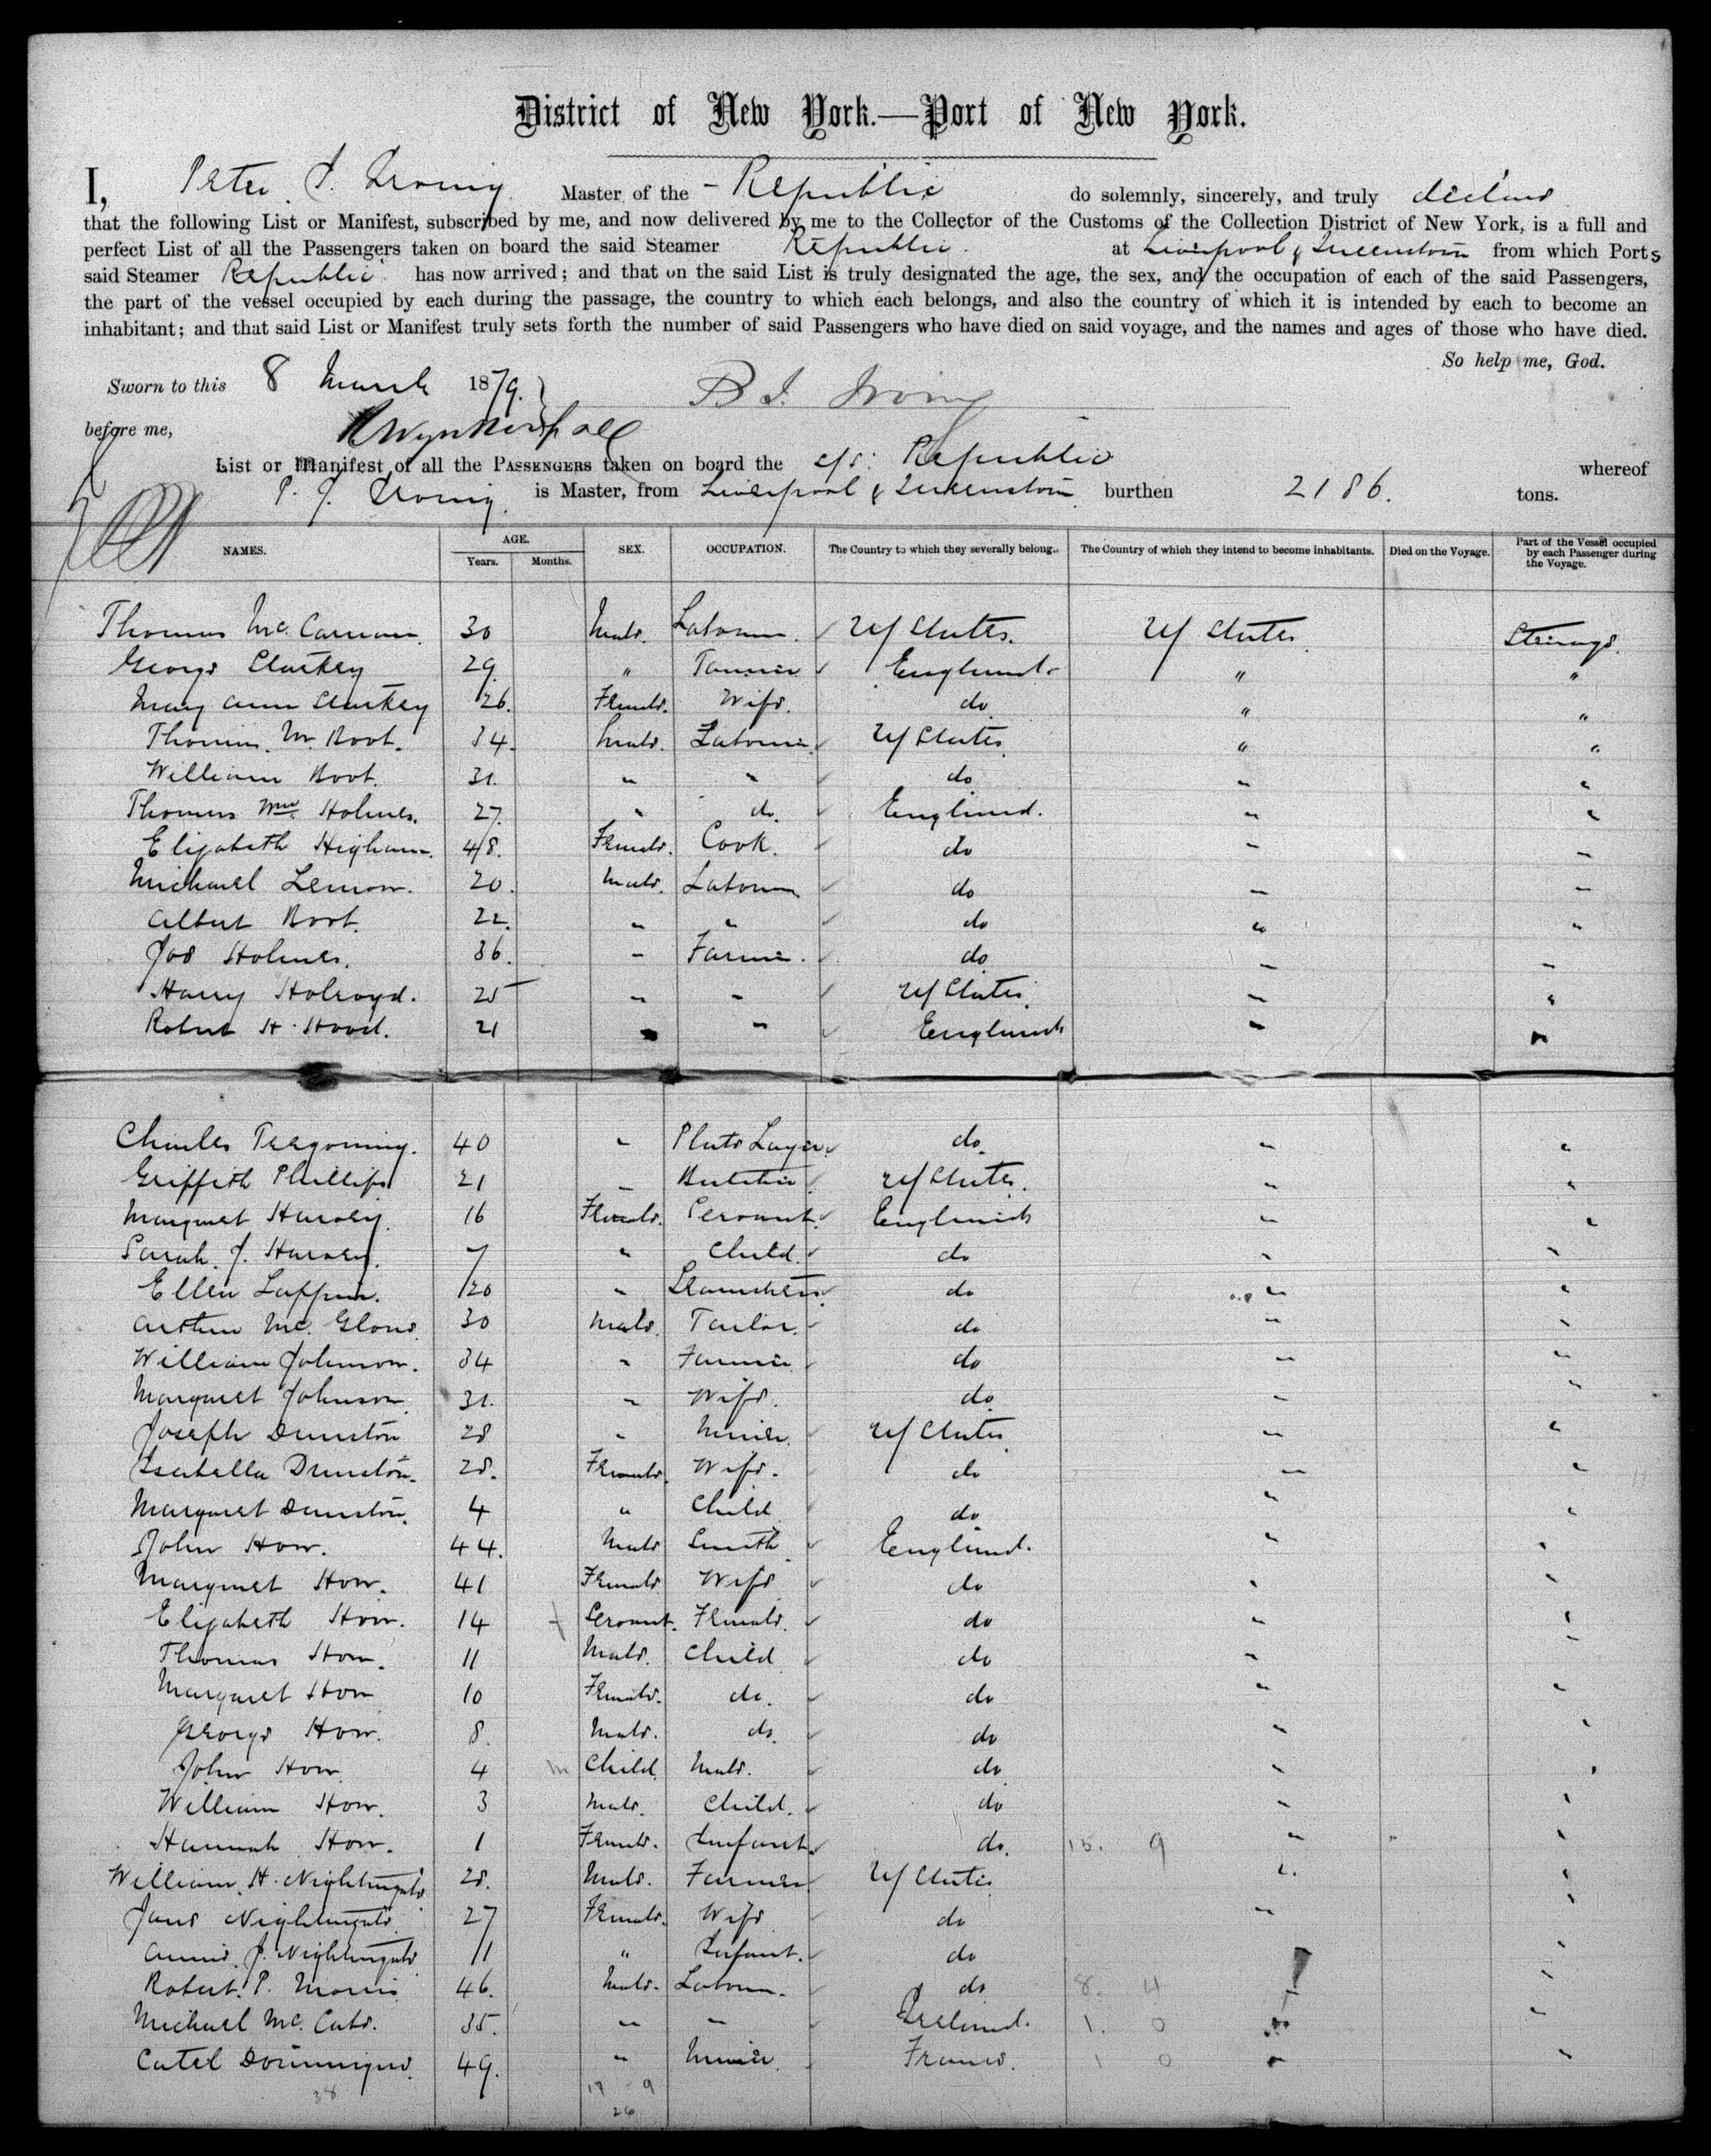 District of New York.—Port of New York.
I, Peter J. Irving Master of the - Republic do solemnly, sincerely, and truly declare
that the following List or Manifest, subscribed by me, and now delivered by me to the Collector of the Customs of the Collection District of New York, is a full and
perfect List of all the Passengers taken on board the said Steamer Republic. at Liverpool & Queenstown from which Ports
said Steamer Republic has now arrived; and that on the said List is truly designated the age, the sex, and the occupation of each of the said Passengers,
the part of the vessel occupied by each during the passage, the country to which each belongs, and also the country of which it is intended by each to become an
inhabitant; and that said List or Manifest truly sets forth the number of said Passengers who have died on said voyage, and the names and ages of those who have died.
So help me, God.
Sworn to this 8 March 1879. Irving
before me,
List or Manifest of all the PASSENGERS taken on board the s/s: Republic whereof
P. J. Irving is Master, from Liverpool & Queenstown burthen 2186. tons.
NAMES. AGE. Years. Months. SEX. OCCUPATION. The Country to which they severally belong. The Country of which they intend to become inhabitants. Died on the Voyage. Part of the Vessel occupied by each Passenger during the Voyage.
Thomas Mc. 30 Male. Labourer. U/States. U/States. Steerage.
George 29 " Tanner England " "
Mary Ann 26. Female. Wife. do " "
Thomas. W. Boot. 34. Male. Labourer. U/States. " "
William Boot. 31. " " do " "
Thomas Wm Holmes. 27. " do. England. " "
Elizabeth Higham. 48. Female. Cook. do " "
Michael 20. Male. Labourer do " "
Albert Boot. 22. " " do " "
Jos Holmes. 36. " Farmer. do " "
Harry Holroyd. 25 " " U/States. " "
Robert H. Hood. 21 " " England " "
Charles Tregoning. 40 " Plate Layer do. " "
Griffith Phillips 21 " Butcher U/States. " "
Margaret Harvey. 16 Female. Servant. England " "
Sarah. J. Harvey. 7 " Child. do " "
Ellen 20 " do " "
Arthur Mc. 30 Male. Tailor. do " "
William Johnson. 34 " Farmer do " "
Margaret Johnson. 31. " Wife. do. " "
Joseph Dunston 28 " Miner. U/States " "
Isabella Dunston. 28. Female. Wife. do " "
Margaret Dunston. 4 " Child do " "
John How. 44. Male Smith England. " "
Margaret How. 41 Female Wife do " "
Elizabeth How. 14 Servant. Female. do " "
Thomas How. 11 Male. Child do " "
Margaret How 10 Female. do. do " "
George How. 8. Male. do. do " "
John How. 4 m Child. Male. do " "
William How. 3 Male. Child. do " "
Hannah How. 1 Female. Infant. do. 15. 9 " "
William. H. Nightingale 28. Male. Farmer U/States " "
Jane Nightingale 27 Female. Wife do " "
Annie. J. Nightingale 11 " Infant. do "
Robert. P. Morris 46. Male. Labourer. do 8. 4 " "
Michael Mc. Cabe. 35. " " Ireland. 1. 0 " "
Catel Dominique. 49. " Miner. France. 1 0 " "
38 17 9
26